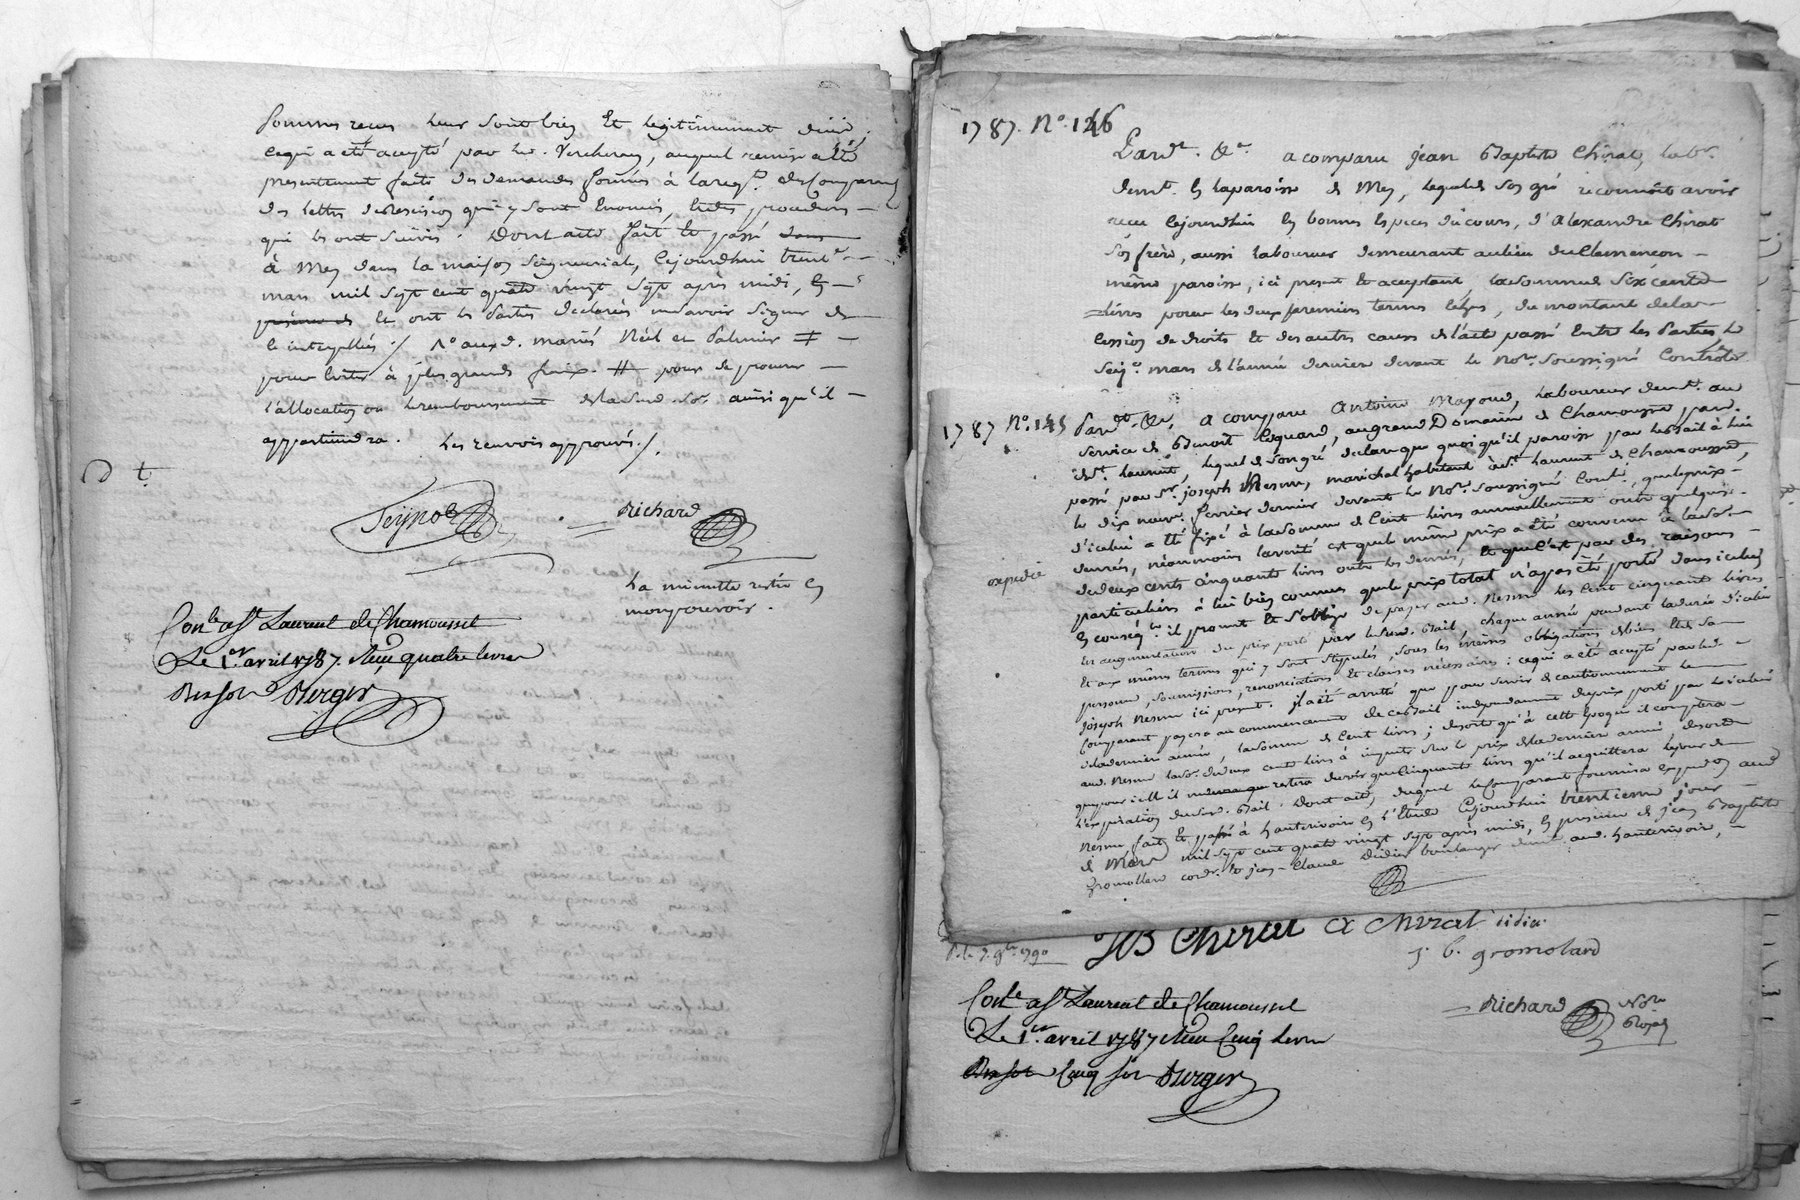 sommes recues leur sont bien et légitimement dües;
ce qui a été accepté par led. Vercheran, auquel remise a été
présentement faite des demandes formées à la req.te des Comparans
des lettres de Rescision qui y sont énoncés, et des procedures
qui les ont suivis. Dont acte fait et passé dans
à Mey dans la maison Seigneuriale, cejourdhui trente
mars mil sept cent quatre vingt sept après midi, en
présence de et ont les parties déclarées ne savoir signer de
ce interpellés ./
pour éviter à plus grands frais. # pour se procurer
l'allocation ou remboursement de lad. so.e ainsi qu'il
appartiendra. Les renvois approuvés ./.
Richard
La minutte restée en
mon pouvoir.
Con.lé a St Laurent de Chamousset
Le 1.er avril 1787. Reçu quatre livres
dix sols Berger
1787. No. 146
Pard.t &.a a comparu jean Baptiste Chirat, lab.r
dem.t en la paroisse de Mey, lequel de son gré reconnoit avoir
reçu cejourdhui en bonnes espèces du cours, d'Alexandre Chirat
son frère, aussi laboureur demeurant au lieu du Clemençon
même paroisse, ici present et acceptant, la somme de six cents
livres pour les deux premiers termes échus, du montant de la
cession de droits et des autres causes de l'acte passé entre les parties le
seize mars de l'année derniere devant le No.re soussigné Contrôlé
1787 No. 145
expedié
Pard.t &.a, a comparu Antoine Mayoud, laboureur dem.t au
service de Benoit Coquard, au grand Domaine de Chamousset par.
de St. Laurent, lequel de son gré declare que quoi qu'il paroisse par le bail à lui
passé par Sr. joseph Resme, maréchal habitant à St. Laurent de Chamousset,
le dix neuf fevrier dernier devant le No.re soussigné Cont.é, que le prix
d'icelui a été fixé à la somme de Cent livres annuellement outre quelques
denrées, néanmoins la verité est que le même prix a été convenu à la so.e
de deux cents cinquante livres outre les denrées, et que c'est par des raisons
particulières à lui bien connues que le prix total n'a pas été porté dans icelui
en conseq.ce il promet et s'oblige de payer aud. Resme les Cent cinquante livres
en augmentation du prix porté par led. Bail chaque année pendant la durée d'icelui
et aux mêmes termes qui y sont stipulés, sous les mêmes obligations de biens et de sa
personne, soumissions, renonciations et clauses nécessaires: ce qui a été accepté par led.
joseph Resme ici present. il a été arrêté que pour servir de cautionnement le
Comparant payera au commencement de ce bail independamment du prix porté par icelui
de la derniere année, la somme de Cent livres; de sorte qu'à cette époque il comptera
aud. Resme la so. de deux cents livres à imputer sur le prix de la derniere année de sorte
que pour icelle il ne restera devoir que Cinquante livres qu'il acquittera le jour de
l'expiration dud. Bail. Dont acte, duquel le Comparant fournira expéd.on aud.
Resme fait et passé à hauterivoire en l'Etude cejourdhui trentieme jour
de Mars mil sept cent quatre vingt sept après midi, en présence de jean Baptiste
Gromollard cord.r et jean-Claude Didier boulanger dem.t aud. hauterivoire,
JB Chirat A Chirat didier
J. b. gromolard
Richard No.re
Royal
Con.lé a St Laurent de Chamousset
Le 1.er avril 1787 Reçu Cinq livres
dix sols Cinq sols Berger